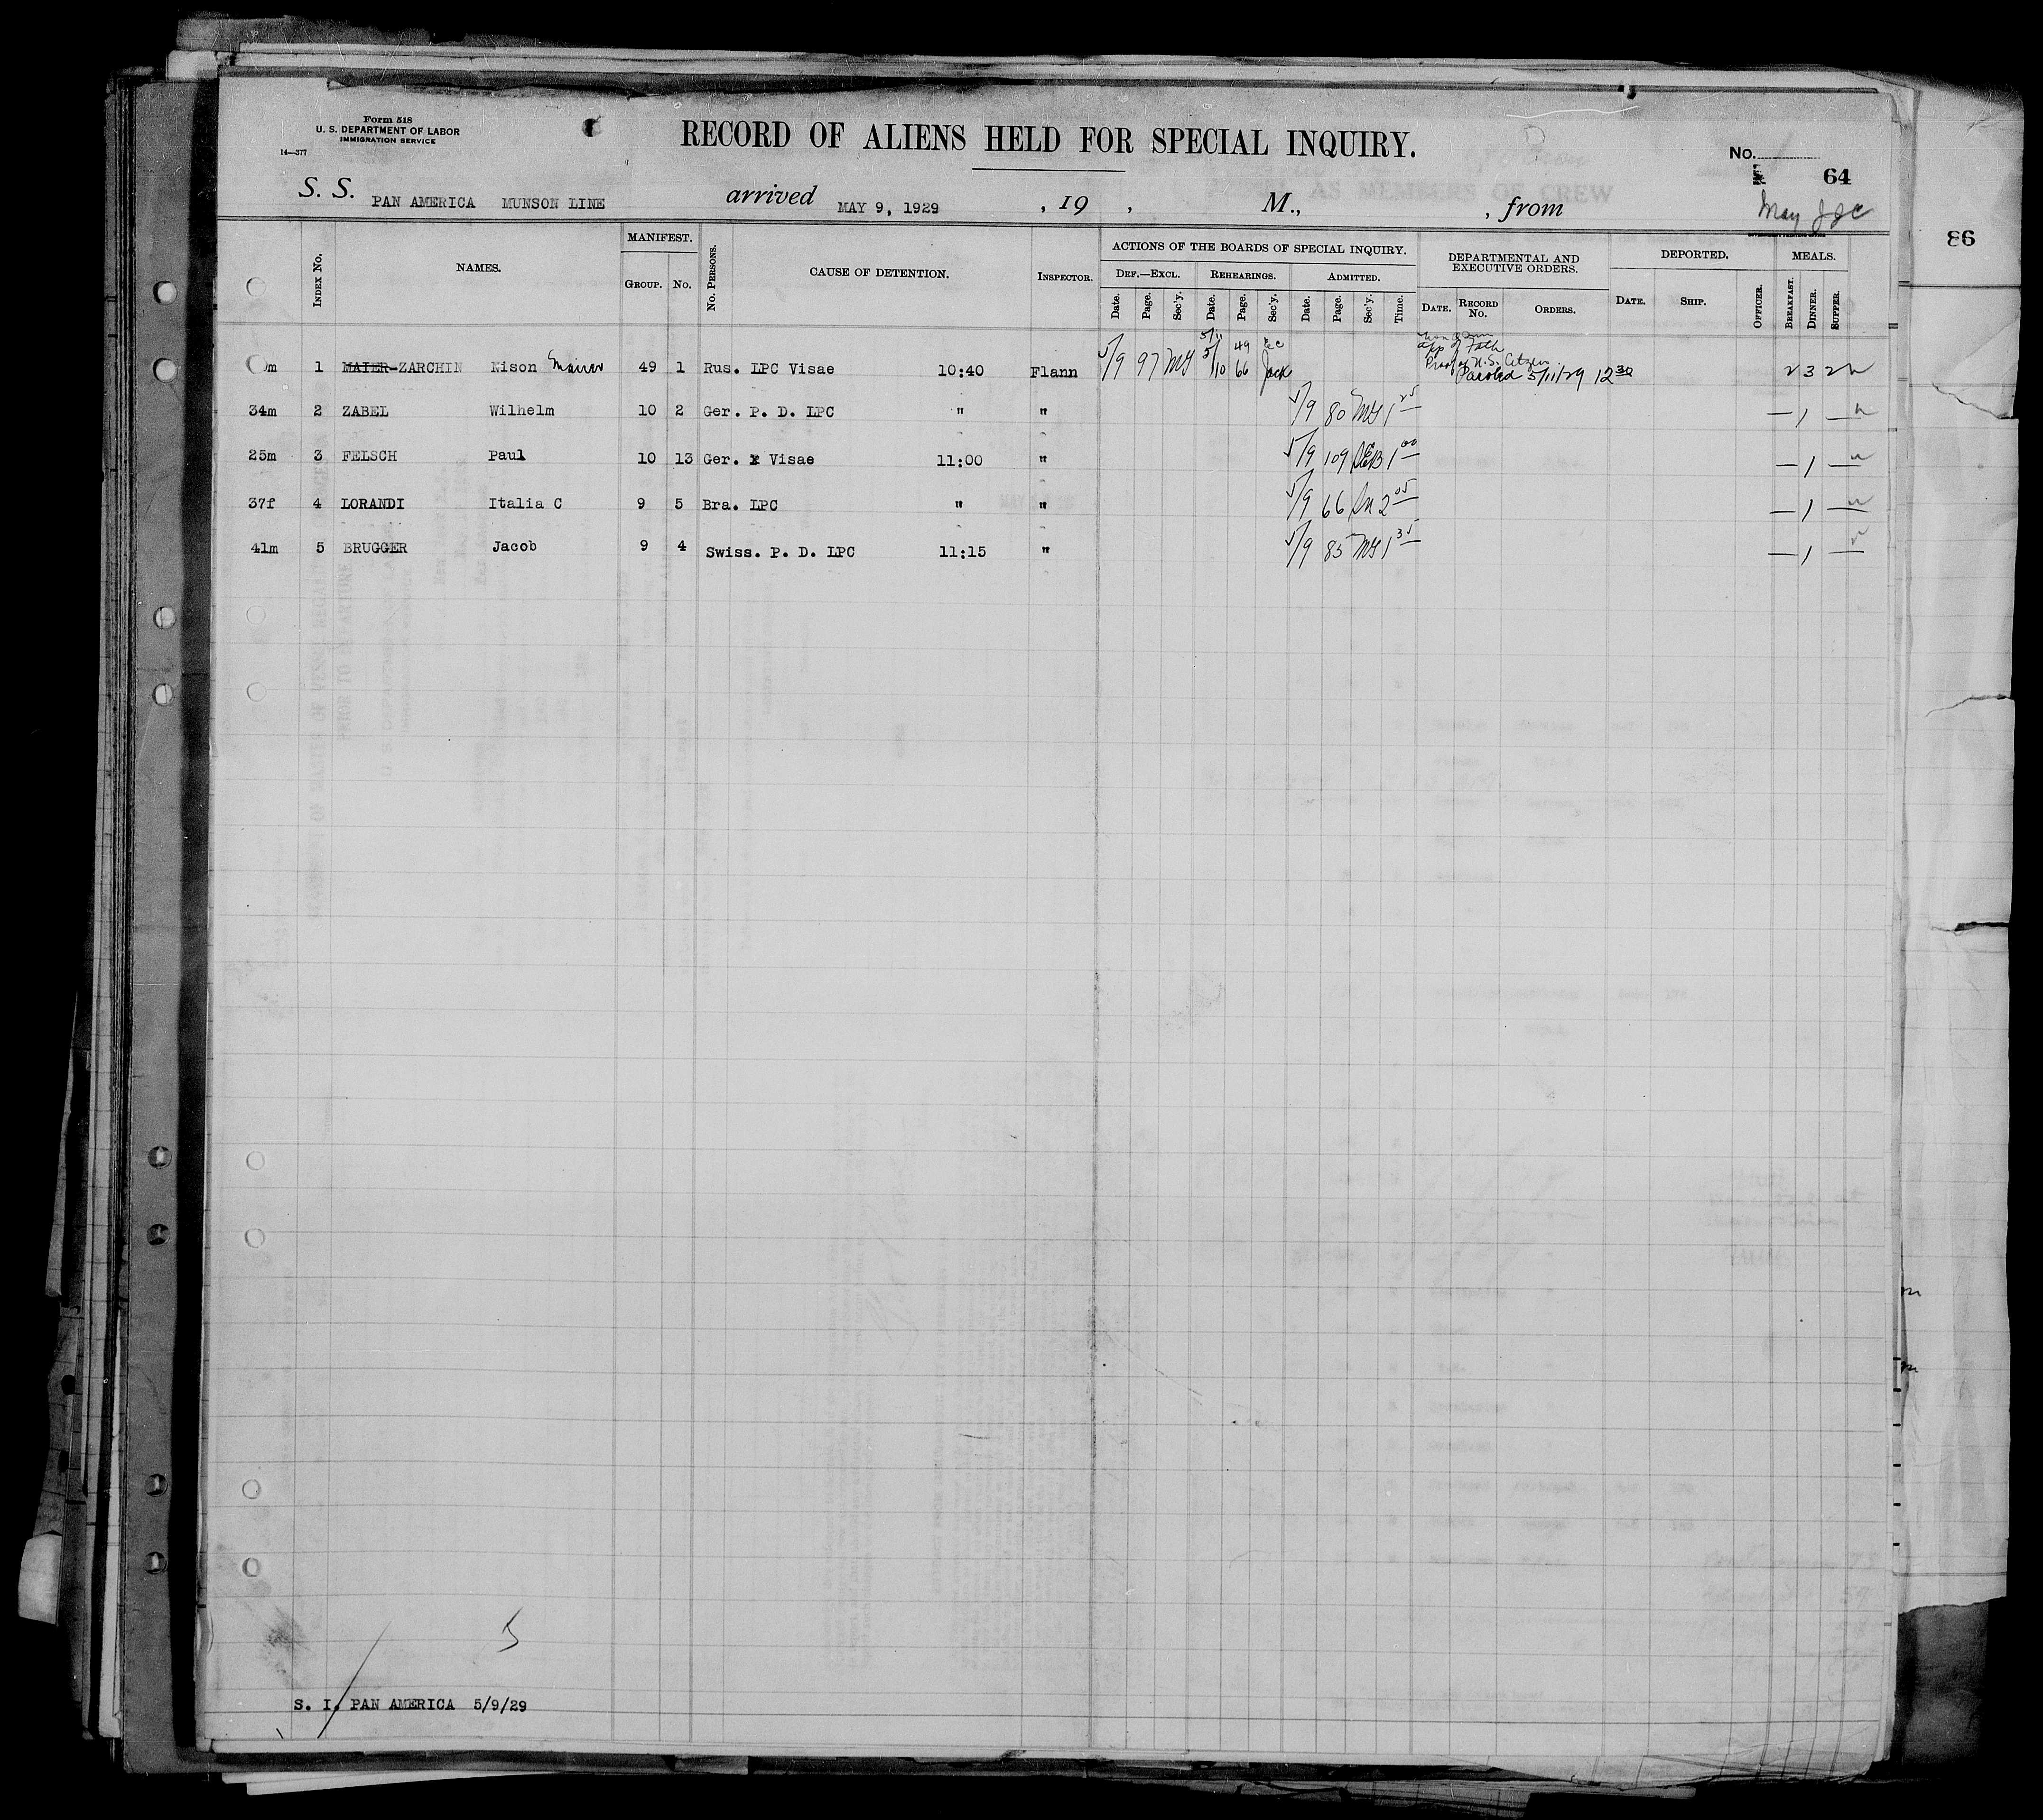 Form 518
U. S. DEPARTMENT OF LABOR
IMMIGRATION SERVICE
14—377
RECORD OF ALIENS HELD FOR SPECIAL INQUIRY.
No.
64
S. S. PAN AMERICA MUNSON LINE arrived MAY 9, 1929 , 19 , M., , from
May
86
INDEX NO. NAMES. MANIFEST. GROUP. NO. NO. PERSONS. CAUSE OF DETENTION. INSPECTOR. ACTIONS OF THE BOARDS OF SPECIAL INQUIRY. DEPARTMENTAL AND EXECUTIVE ORDERS. DEPORTED. MEALS.
DEF.—EXCL. REHEARINGS. ADMITTED.
Date. Page. Sec'y. Date. Page. Sec'y. Date. Page. Sec'y. Time. DATE. RECORD NO. ORDERS. DATE. SHIP. OFFICER. BREAKFAST. DINNER. SUPPER.
5/11 49
app of Fath
Proof of U.S. Citizen
m 1 MAIER-ZARCHIN Nison 49 1 Rus. LPC Visae 10:40 Flann 5/9 97 MY 5/10 66 Jack Paroled 5/11/29 12 30 2 3 2
34m 2 ZABEL Wilhelm 10 2 Ger. P. D. LPC " " 5/9 80 MY 1 25 — 1 —
25m 3 FELSCH Paul 10 13 Ger. x Visae 11:00 " 5/9 109 1 00 — 1 —
37f 4 LORANDI Italia C 9 5 Bra. LPC " " 5/9 66 2 05 — 1 —
41m 5 BRUGGER Jacob 9 4 Swiss. P. D. LPC 11:15 " 5/9 85 MY 1 35 — 1 —
5
S. I. PAN AMERICA 5/9/29